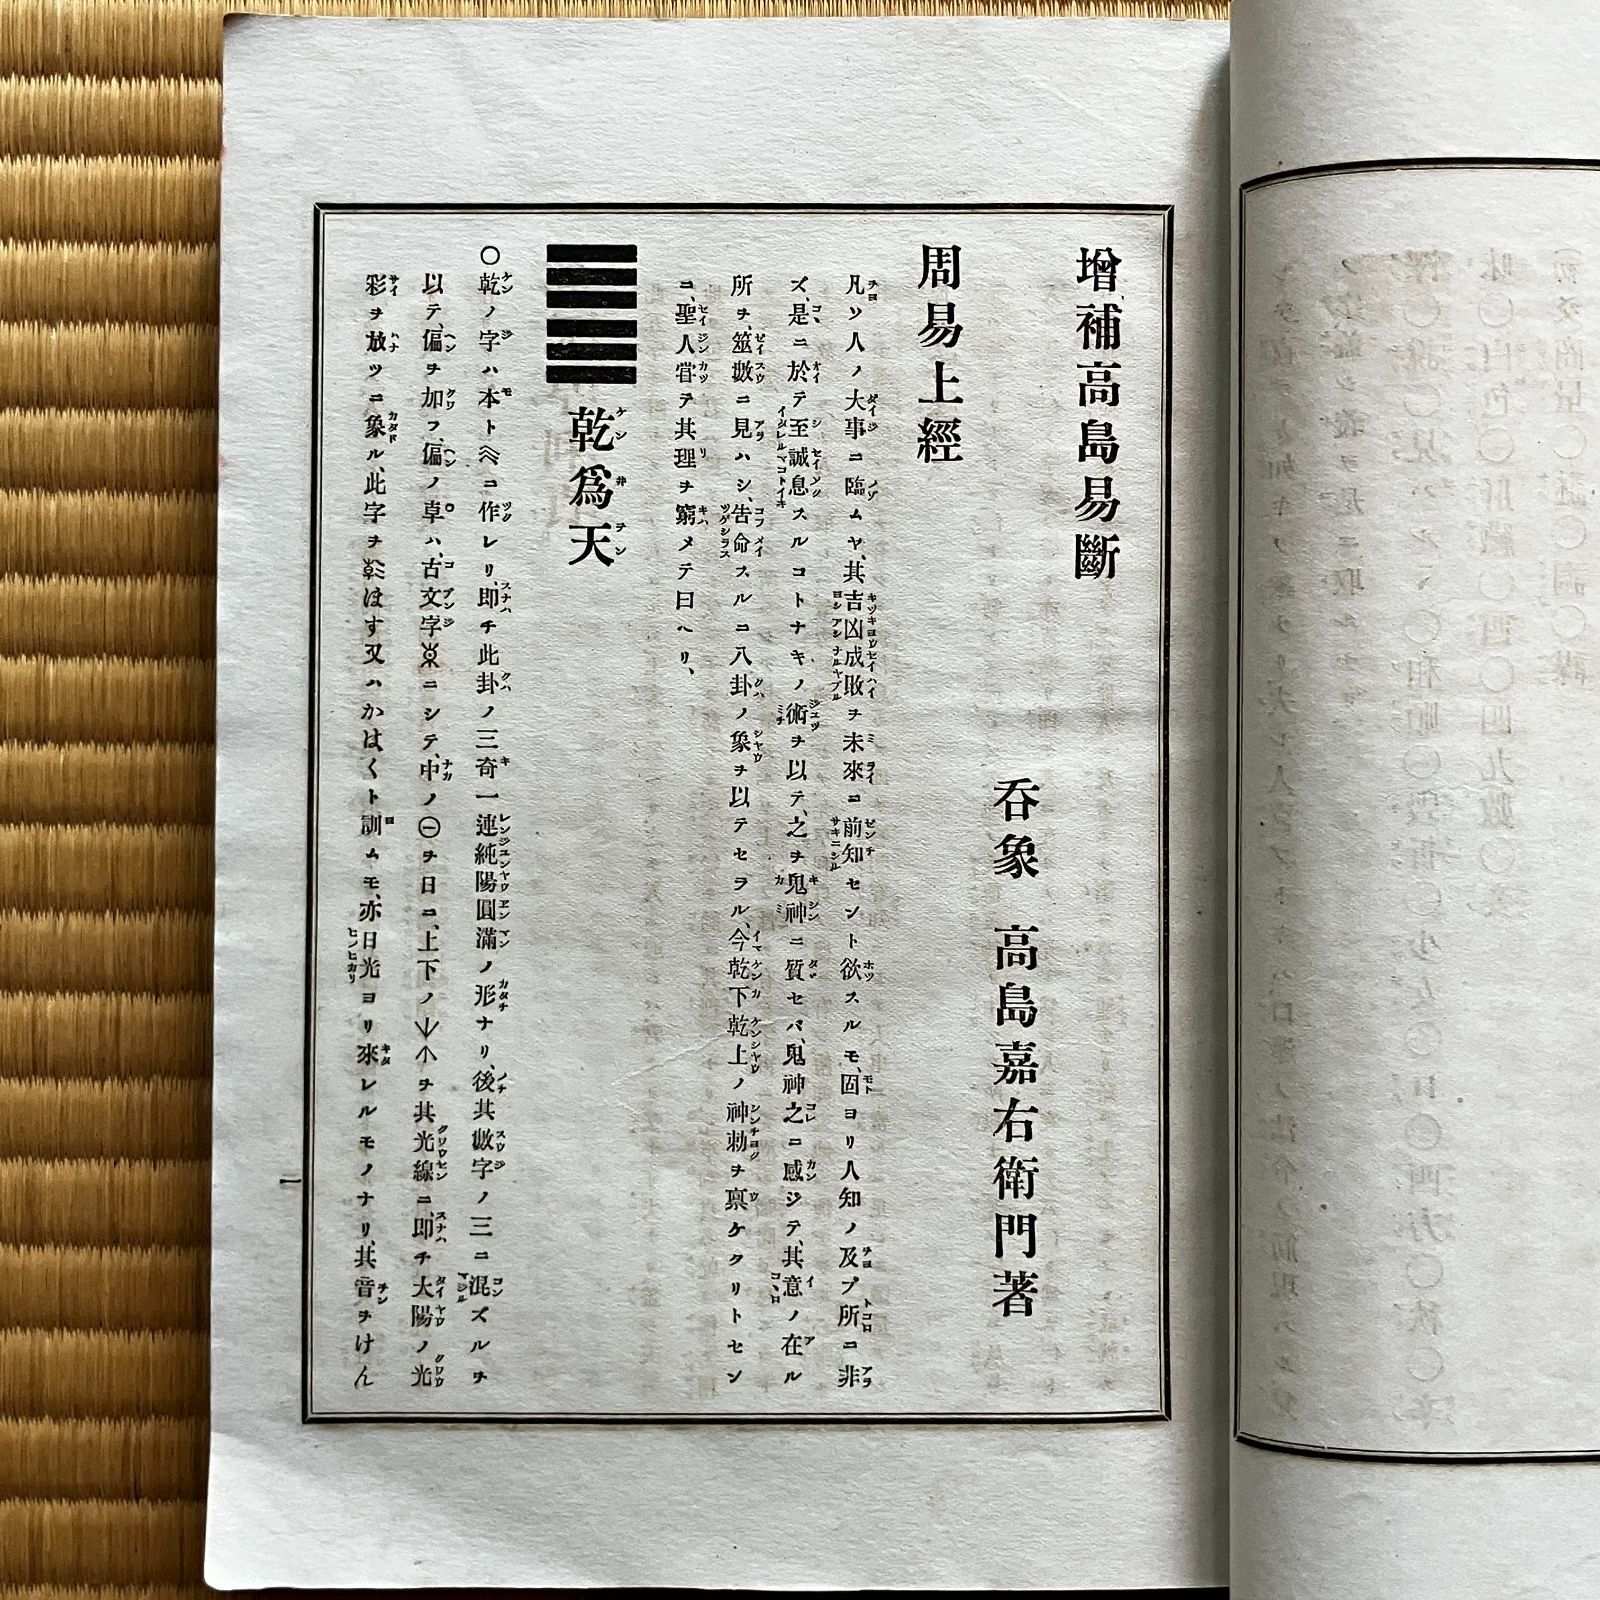 增補高島易斷
呑象 高島嘉右衛門著
周易上經
凡ソ人ノ大事ニ臨ムヤ、其吉凶成敗ヲ未來ニ前知セント欲スルモ、固ヨリ人知ノ及ブ所ニ非
ズ、是ニ於テ至誠息スルコトナキノ術ヲ以テ、之ヲ鬼神ニ質セバ、鬼神之ニ感ジテ、其意ノ在ル
所ヲ、筮數ニ見ハシ、告命スルニ八卦ノ象ヲ以テセラル、今乾下乾上ノ神勅ヲ稟ケタリトセン
ニ、聖人甞テ其理ヲ窮メテ曰ヘリ、
乾爲天
〇乾ノ字ハ本トニ作レリ、即チ此卦ノ三奇一連純陽圓滿ノ形ナリ、後其數字ノ三ニ混ズルヲ
以テ、偏ヲ加フ、偏ノ𠦝ハ、古文字ニシテ、中ノ㊀ヲ日ニ、上下ノヲ其光線ニ、即チ大陽ノ光
彩ヲ放ツニ象ル、此字ヲほす又ハかはくト訓ムモ、亦日光ヨリ來レルモノナリ、其音ヲけん
一